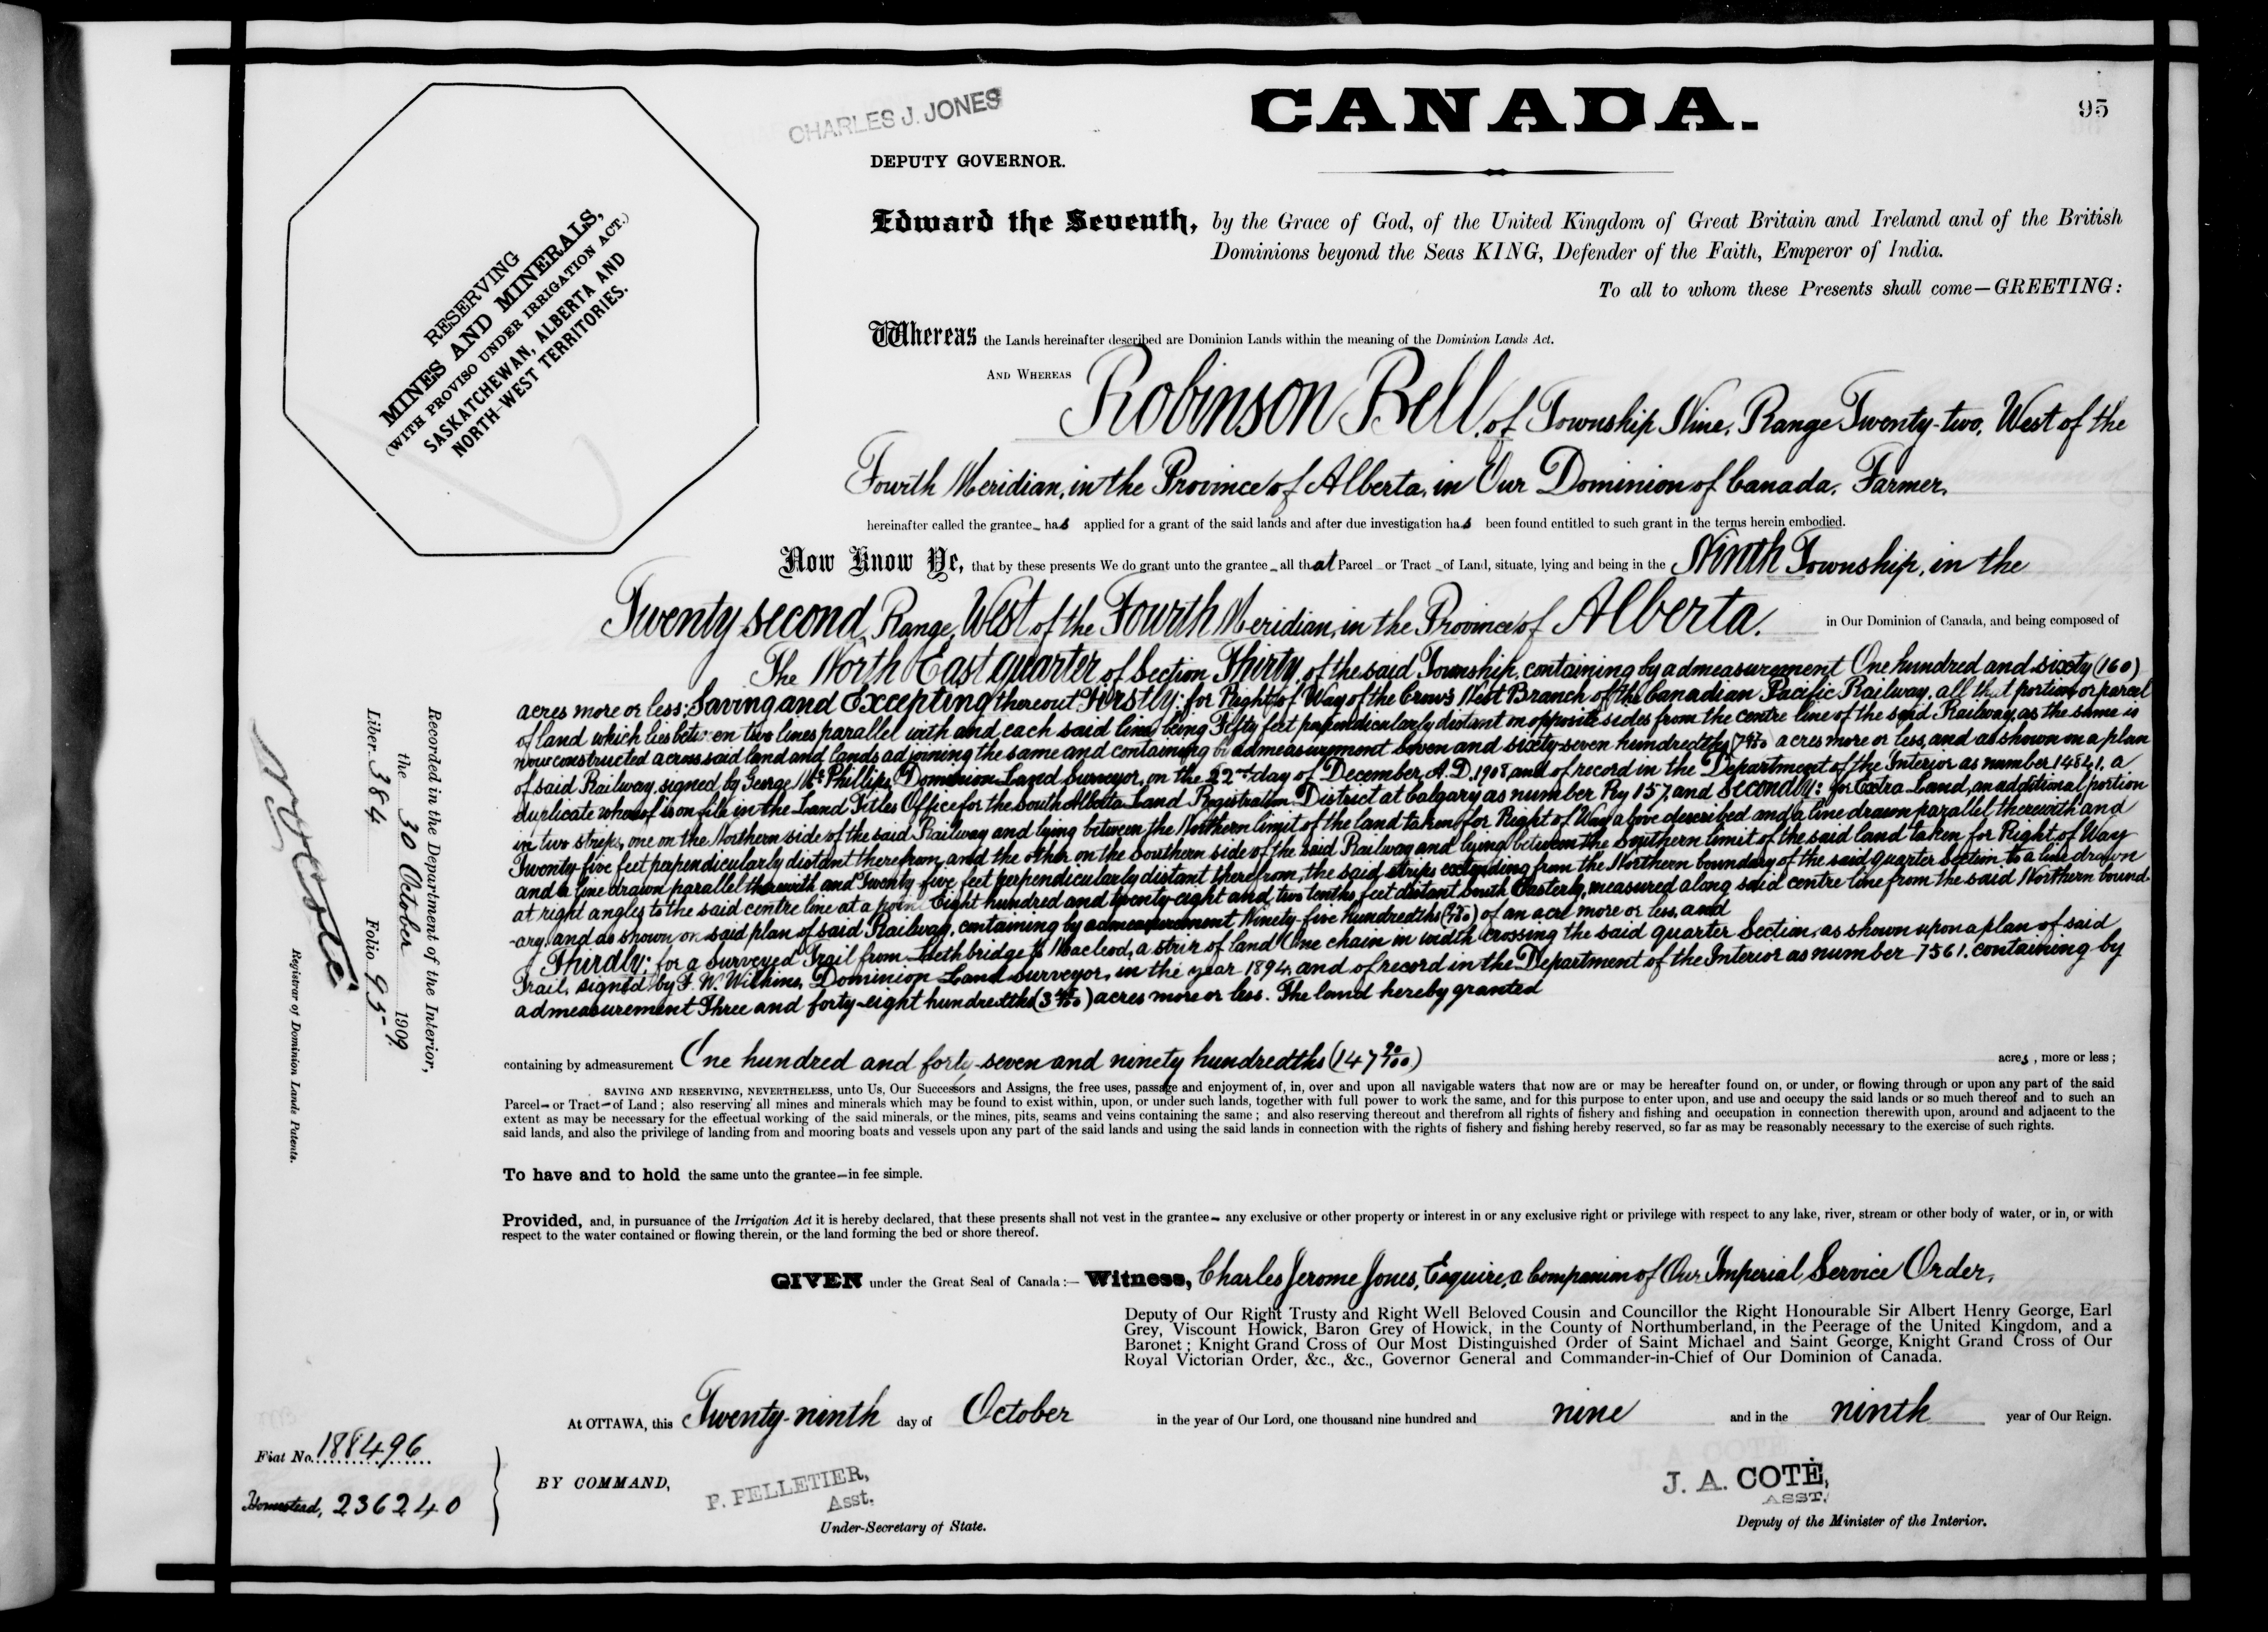 CHARLES J. JONES
CANADA.
95
DEPUTY GOVERNOR.
RESERVING
MINES AND MINERALS,
(WITH PROVISO UNDER IRRIGATION ACT.)
SASKATCHEWAN, ALBERTA AND
NORTH-WEST TERRITORIES.
Edward the Seventh, by the Grace of God, of the United Kingdom of Great Britain and Ireland and of the British
Dominions beyond the Seas KING, Defender of the Faith, Emperor of India.
To all to whom these Presents shall come—GREETING:
Whereas the Lands hereinafter described are Dominion Lands within the meaning of the Dominion Lands Act.
AND WHEREAS Robinson Bell, of Township Nine, Range Twenty-two, West of the
Fourth Meridian, in the Province of Alberta, in Our Dominion of Canada, Farmer,
hereinafter called the grantee has applied for a grant of the said lands and after due investigation has been found entitled to such grant in the terms herein embodied.
Now Know Ye, that by these presents We do grant unto the grantee all that Parcel or Tract of Land, situate, lying and being in the Ninth Township, in the
Twenty second Range, West of the Fourth Meridian, in the Province of Alberta. in Our Dominion of Canada, and being composed of
The North East quarter of Section Thirty, of the said Township, containing by admeasurement One hundred and sixty (160)
acres more or less: Saving and Excepting thereout Firstly: for Right of Way of the Crow's Nest Branch of the Canadian Pacific Railway, all that portion or parcel
of land which lies between two lines parallel with and each said line being Fifty feet perpendicularly distant on opposite sides from the centre line of the said Railway, as the same is
now constructed across said land and lands adjoining the same and containing by admeasurement Seven and sixty-seven hundredths (7 67/100) acres more or less, and as shown on a plan
of said Railway, signed by George Mc Phillips, Dominion Land Surveyor, on the 22nd day of December, A.D. 1908, and of record in the Department of the Interior as number 14841, a
duplicate whereof is on file in the Land Titles Office for the South Alberta Land Registration District at Calgary as number Ry 157, and Secondly: for Extra Land, an additional portion
in two strips, one on the Northern side of the said Railway and lying between the Northern limit of the land taken for Right of Way above described and a line drawn parallel therewith and
Twenty-five feet perpendicularly distant therefrom, and the other on the Southern side of the said Railway and lying between the Southern limit of the said land taken for Right of Way
and a line drawn parallel therewith and Twenty-five feet perpendicularly distant therefrom, the said strips extending from the Northern boundary of the said quarter Section to a line drawn
at right angles to the said centre line at a point Eight hundred and twenty-eight and two tenths feet distant South Easterly, measured along said centre line from the said Northern bound-
-ary, and as shown on said plan of said Railway, containing by admeasurement Ninety-five hundredths (95/100) of an acre more or less, and
Thirdly: for a surveyed Trail from Lethbridge to Macleod, a strip of land One chain in width crossing the said quarter Section, as shown upon a plan of said
Trail, signed by F. W. Wilkins, Dominion Land Surveyor, in the year 1894, and of record in the Department of the Interior as number 7561, containing by
admeasurement Three and forty-eight hundredths (3 48/100) acres more or less. The land hereby granted
containing by admeasurement One hundred and forty-seven and ninety hundredths (147 90/100) acres, more or less;
SAVING AND RESERVING, NEVERTHELESS, unto Us, Our Successors and Assigns, the free uses, passage and enjoyment of, in, over and upon all navigable waters that now are or may be hereafter found on, or under, or flowing through or upon any part of the said
Parcel or Tract of Land; also reserving all mines and minerals which may be found to exist within, upon, or under such lands, together with full power to work the same, and for this purpose to enter upon, and use and occupy the said lands or so much thereof and to such an
extent as may be necessary for the effectual working of the said minerals, or the mines, pits, seams and veins containing the same; and also reserving thereout and therefrom all rights of fishery and fishing and occupation in connection therewith upon, around and adjacent to the
said lands, and also the privilege of landing from and mooring boats and vessels upon any part of the said lands and using the said lands in connection with the rights of fishery and fishing hereby reserved, so far as may be reasonably necessary to the exercise of such rights.
To have and to hold the same unto the grantee—in fee simple.
Provided, and, in pursuance of the Irrigation Act it is hereby declared, that these presents shall not vest in the grantee any exclusive or other property or interest in or any exclusive right or privilege with respect to any lake, river, stream or other body of water, or in, or with
respect to the water contained or flowing therein, or the land forming the bed or shore thereof.
GIVEN under the Great Seal of Canada:— Witness, Charles Jerome Jones, Esquire, a Companion of Our Imperial Service Order,
Deputy of Our Right Trusty and Right Well Beloved Cousin and Councillor the Right Honourable Sir Albert Henry George, Earl
Grey, Viscount Howick, Baron Grey of Howick, in the County of Northumberland, in the Peerage of the United Kingdom, and a
Baronet; Knight Grand Cross of Our Most Distinguished Order of Saint Michael and Saint George, Knight Grand Cross of Our
Royal Victorian Order, &c., &c., Governor General and Commander-in-Chief of Our Dominion of Canada.
At OTTAWA, this Twenty-ninth day of October in the year of Our Lord, one thousand nine hundred and nine and in the ninth year of Our Reign.
BY COMMAND,
P. PELLETIER,
Asst.
Under-Secretary of State.
J. A. COTÉ,
ASST.
Deputy of the Minister of the Interior.
Fiat No. 188496
Homestead, 236240
Recorded in the Department of the Interior,
the 30 October 1909
Liber 384 Folio 95
Registrar of Dominion Lands Patents.